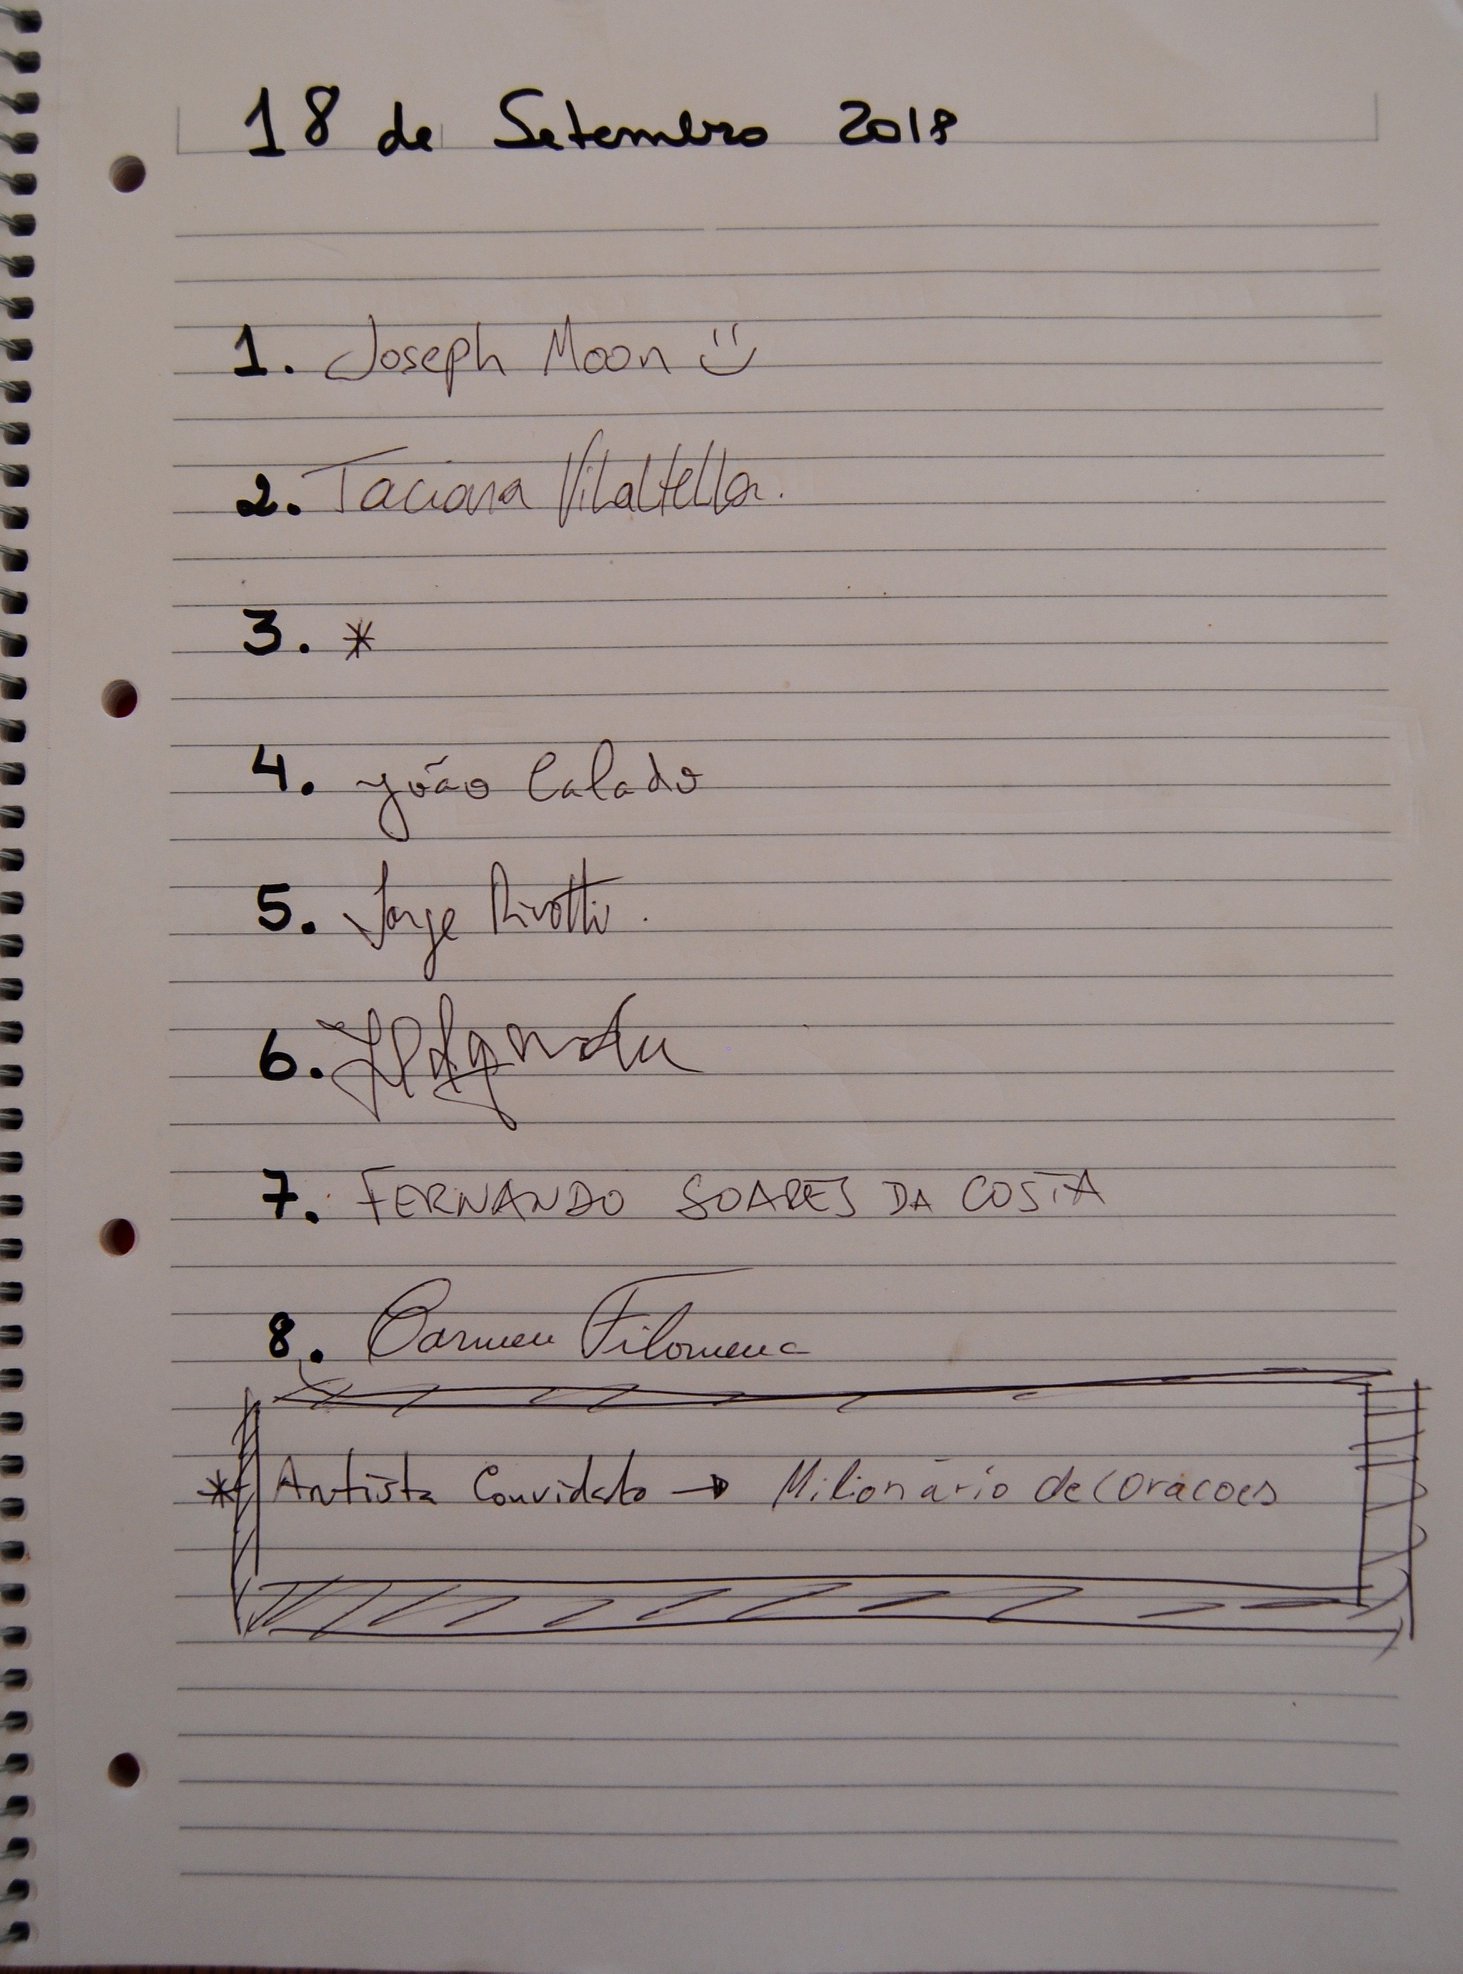 18 de Setembro 2018
1. Joseph Moon
2. Taciana Vilaltella.
3. *
4. João Calado
5. Jorge Rivotti.
6.
7. FERNANDO SOARES DA COSTA
8. Carmen Filomena
* Artista Convidado → Milionário de Coracoes